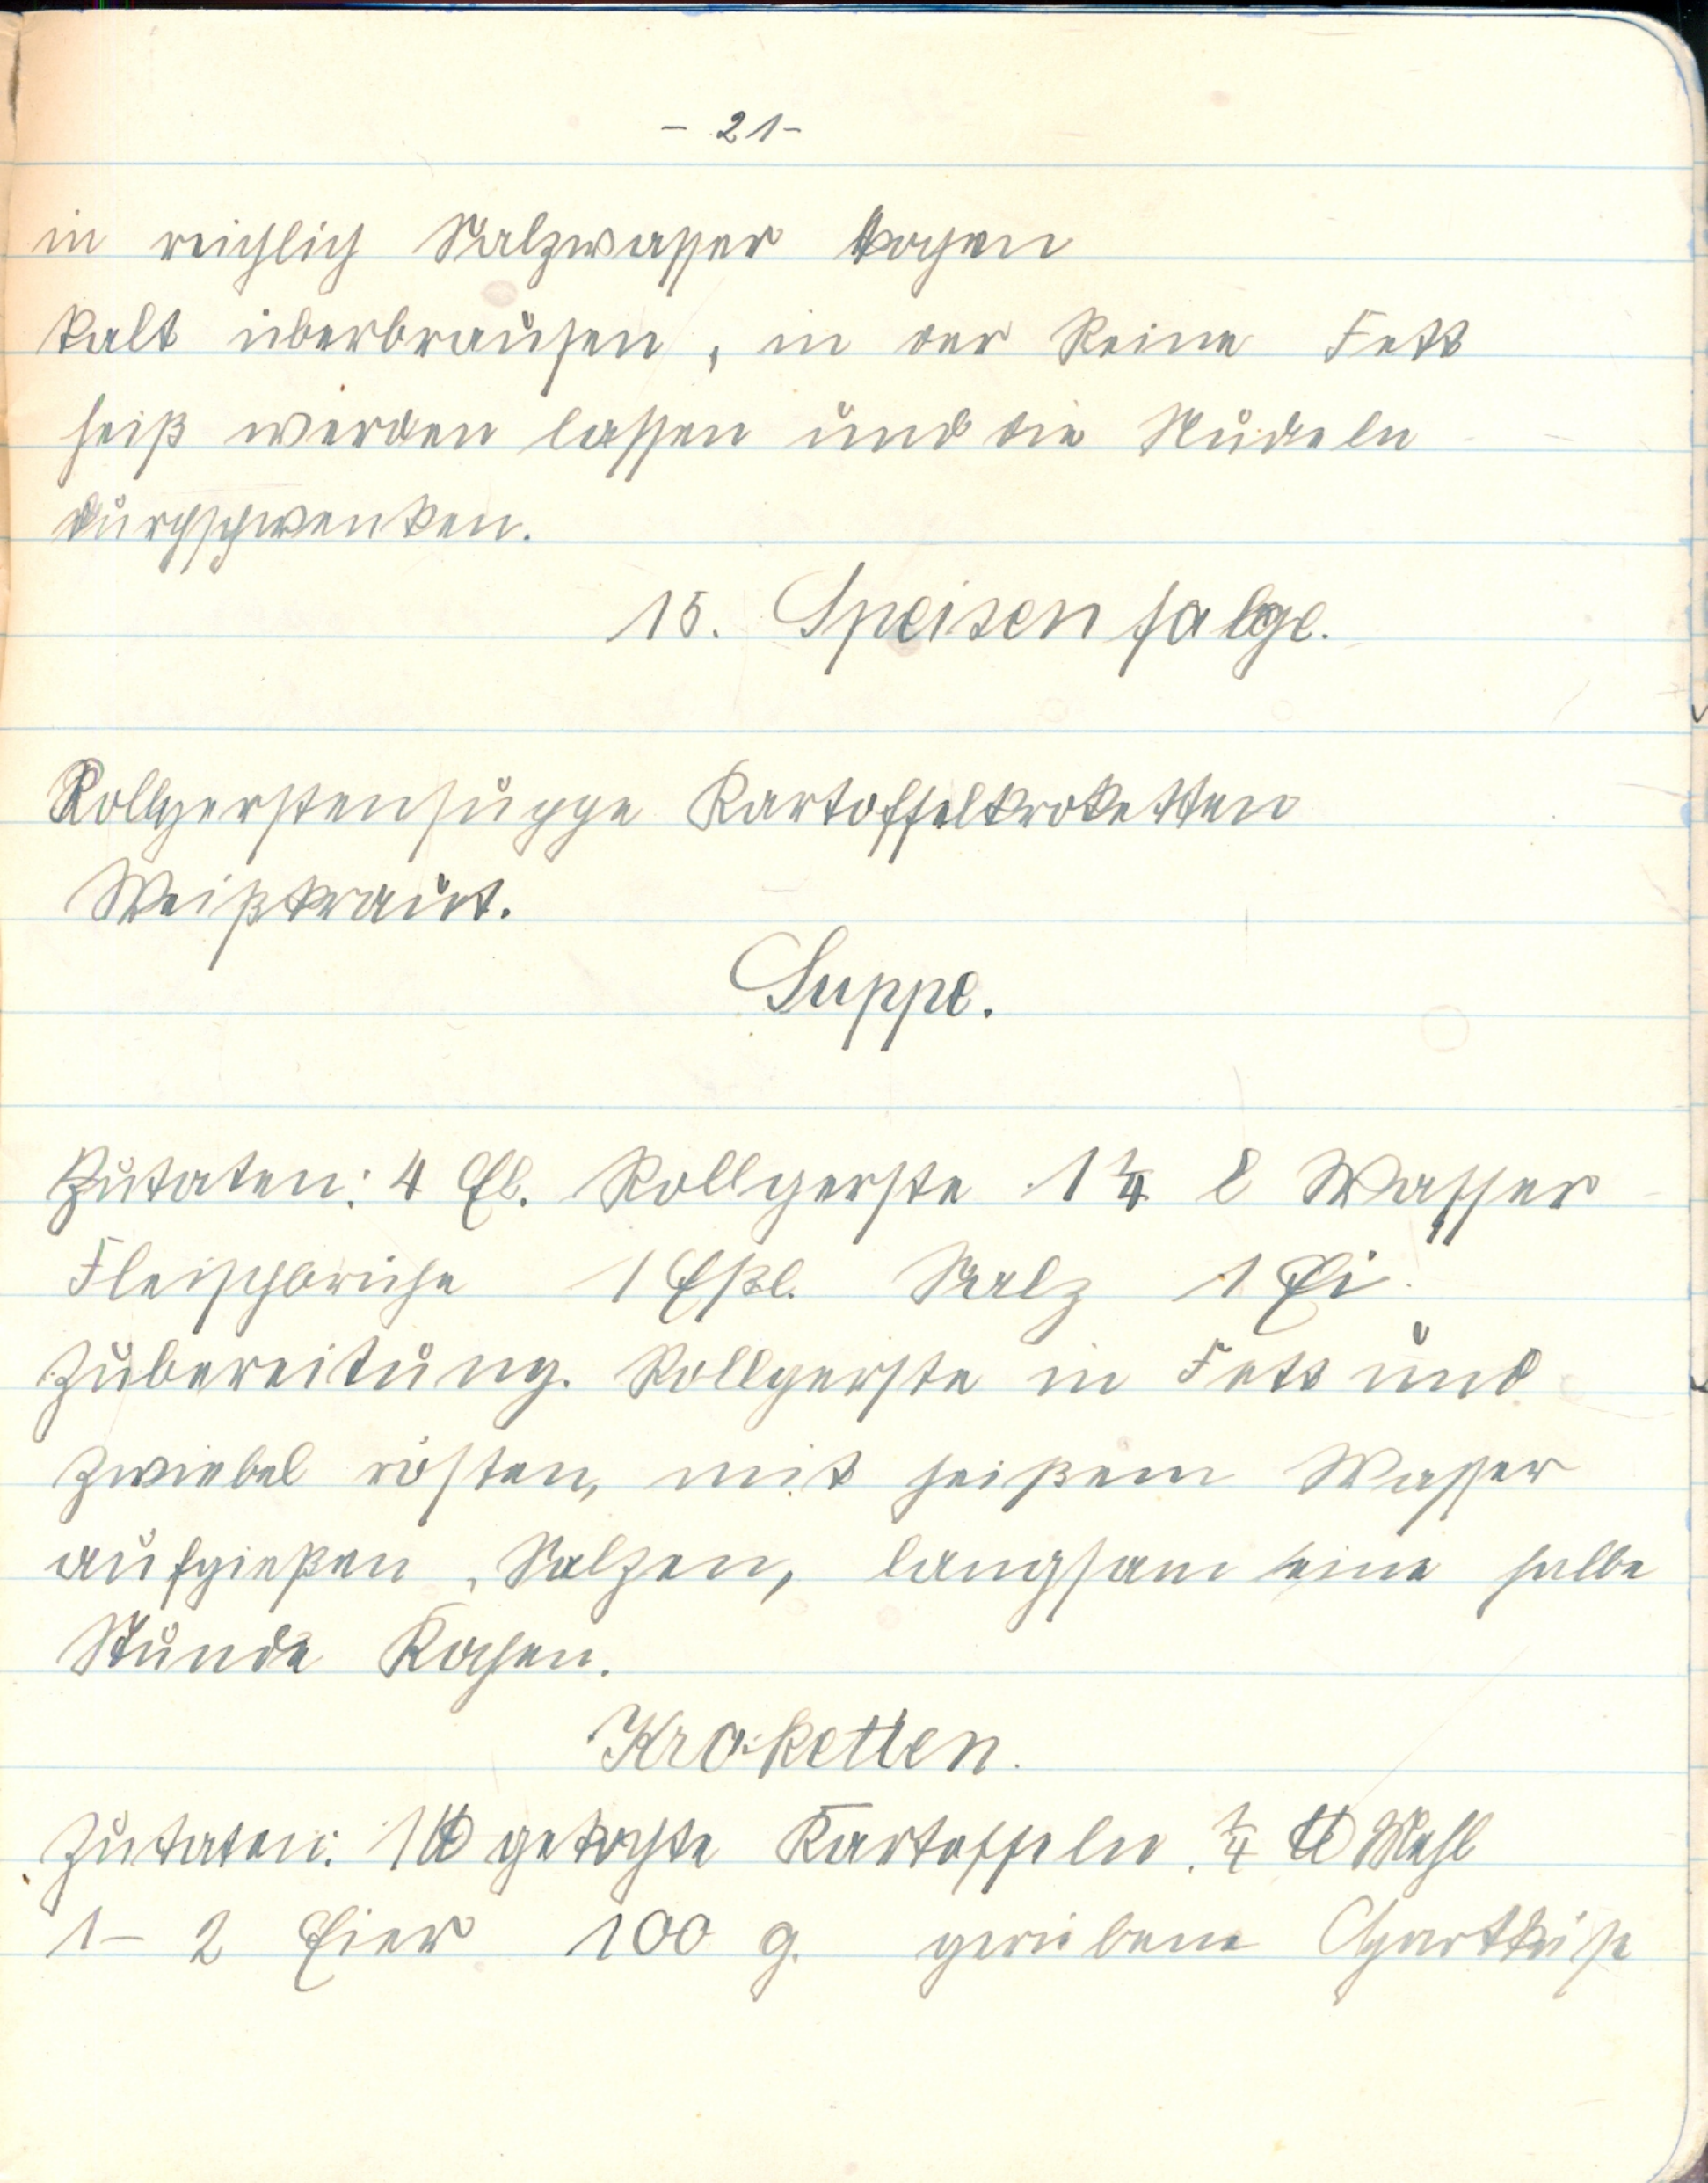 - 21 -
in reichlich Salzwasser kochen
kalt überbrausen, in der Reine Fett
heiß werden lassen und die Nudeln
durchschwenken.
15. Speisenfolge.
Rollgerstensuppe Kartoffelkroketten
Weißkraut.
Suppe.
Zutaten: 4 El. Rollgerste 1 1/4 l Wasser
Fleischbrühe 1 Eßl. Salz 1 Ei.
Zubereitung. Rollgerste in Fett und
Zwiebel rösten, mit heißem Wasser
aufgießen, Salzen, langsam eine halbe
Stunde Kochen.
Kroketten.
Zutaten: 1 ℔ gekochte Kartoffeln. 1/4 ℔ Mehl
1 - 2 Eier 100 g. geriebene